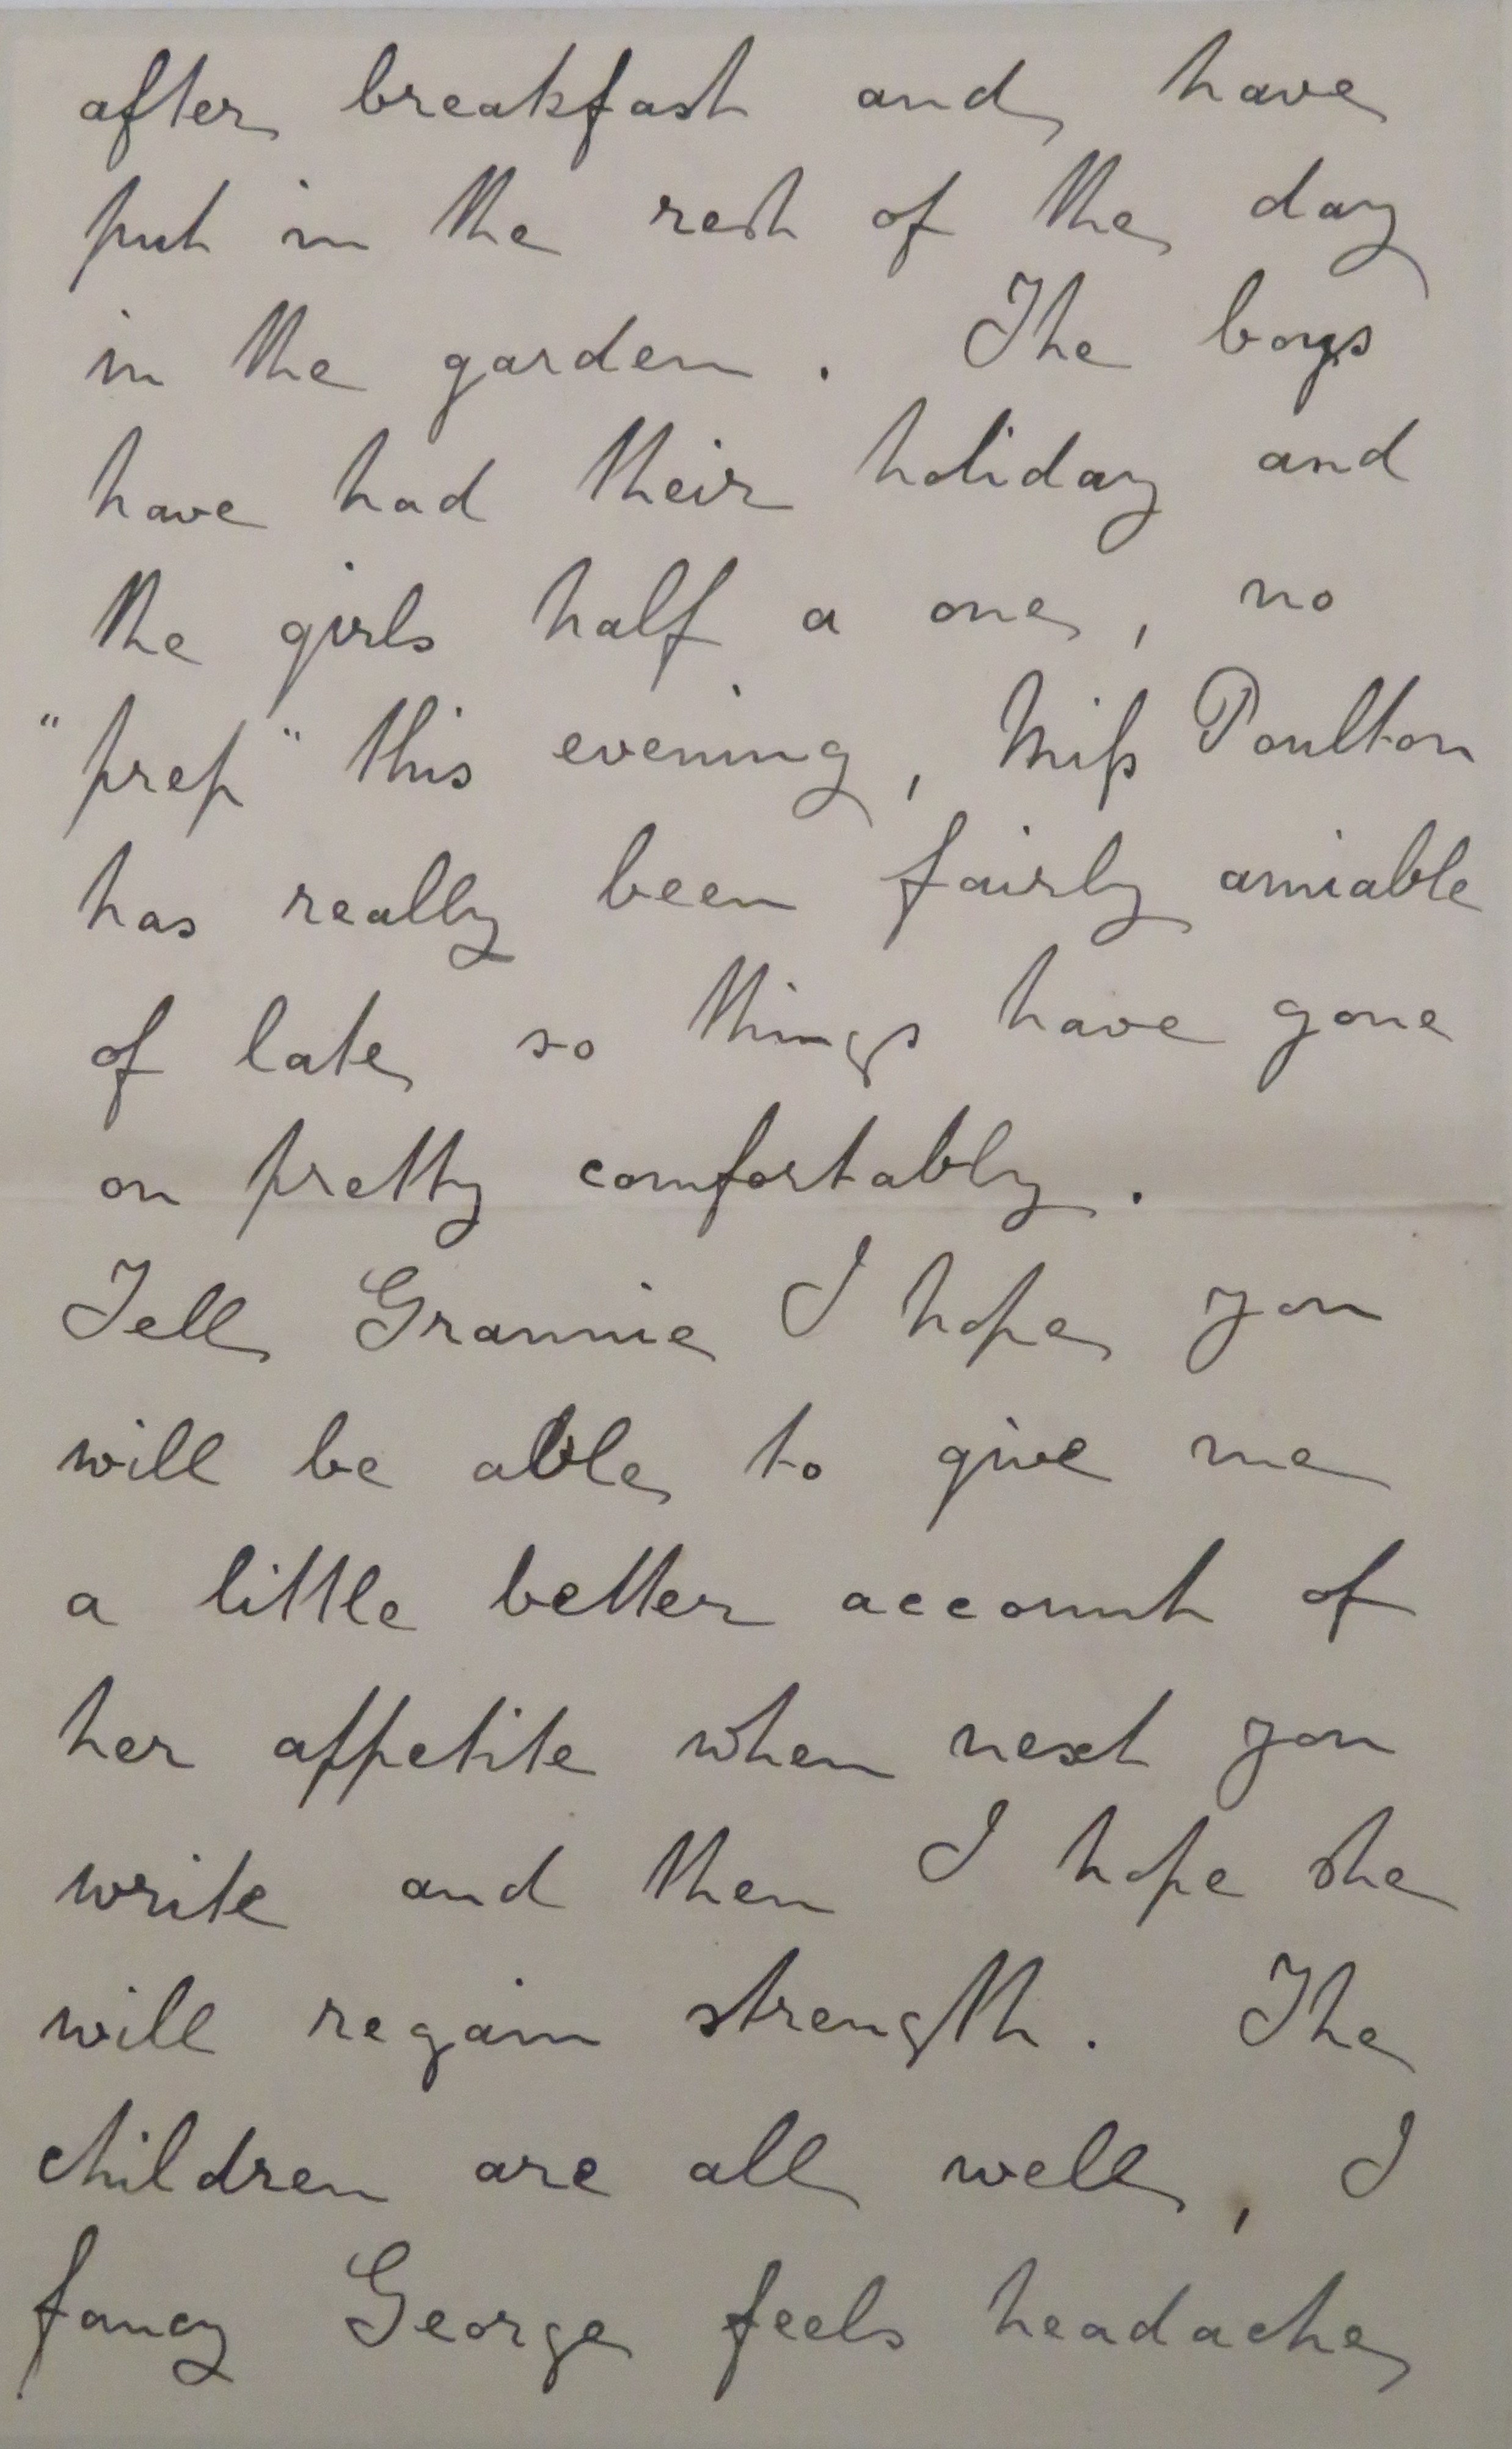 after breakfast and have
put in the rest of the day
in the garden. The boys
have had their holiday and
the girls half a one, no
"prep" this evening, Miss Poulton
has really been fairly amiable
of late so things have gone
on pretty comfortably.
Tell Grannie I hope you
will be able to give me
a little better account of
her appetite when next you
write and then I hope she
will regain strength. The
children are all well, I
fancy George feels headachey